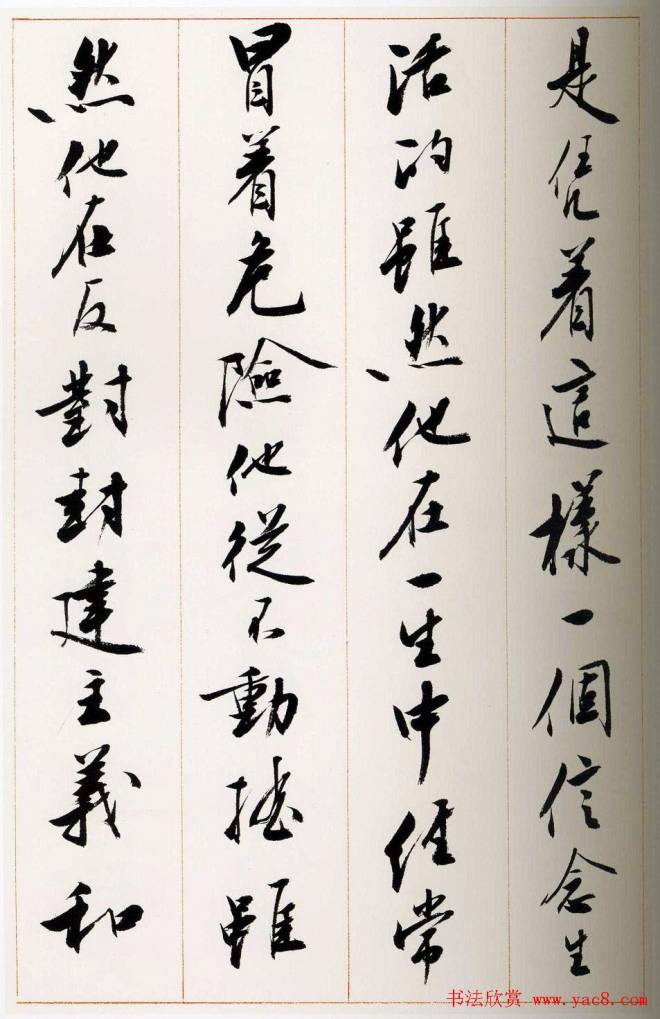 是凭着這樣一個信念生
活的雖然他在一生中經常
冒着危險他從不動搖雖
然他在反對封建主義和
书法欣赏 www.yac8.com